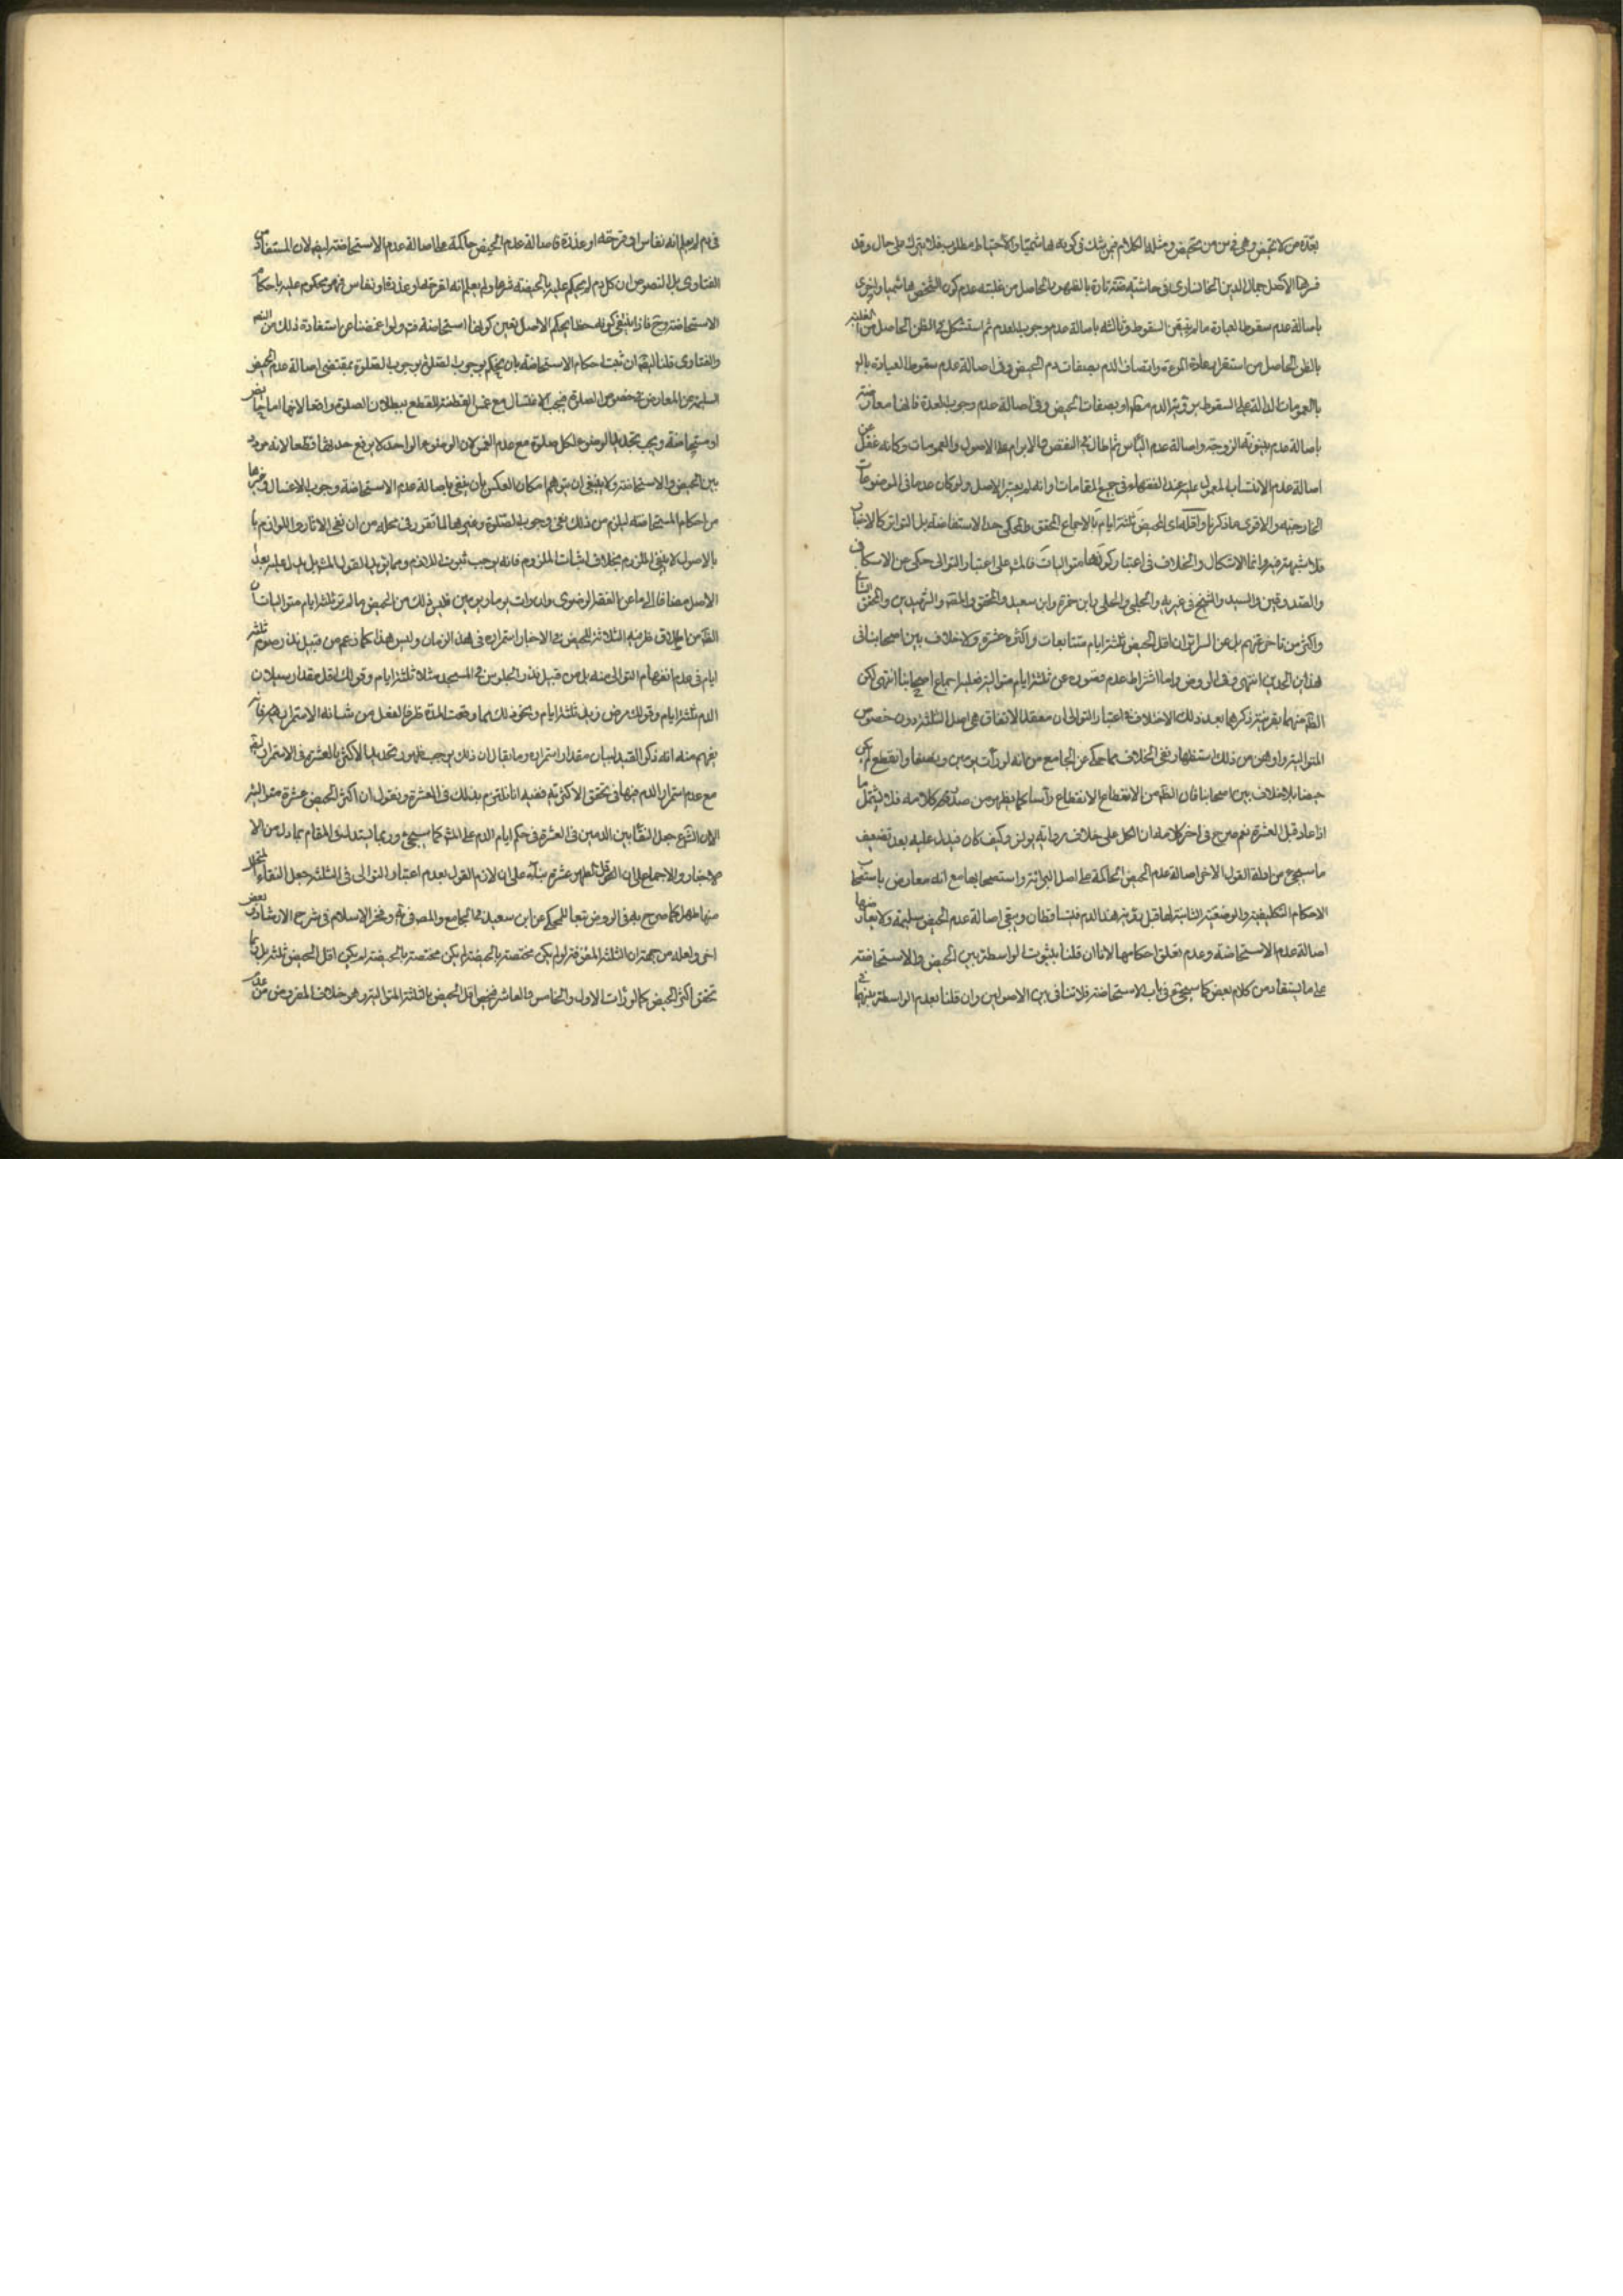 بعدّة من لا تحيض وهي في سن من تحيض ومثله الكلام فيمن شك في كونه هاشميّا والاحتياط مطلوب فلا يترك على حال وقد
قررها الأكمل جمال الدين الخوانساري في حاشيته تارة بالظهور الحاصل من غلبته عدم كون الشخص هاشميا واخرى
باصالة عدم سقوط العبادة ما لم يتيقن السقوط وثالثه باصالة عدم وجوب العدم ثم استشكل في الظن الحاصل من الغلبة
بالظن الحاصل من استقرار عادة المرءة واتصاف الدم بصفات دم الحيض وفي اصالة عدم سقوط العبادة بالو
بالعمومات الدالة على السقوط برؤية الدم مطلقا او بصفات الحيض وفي اصالة عدم وجوب العدة فانها معارضة
باصالة عدم بينونة الزوجة واصالة عدم الياس ثم اطال في النقض والابرام على الاصول والعمومات وكانه غفل عن
اصالة عدم الانتساب المعول عليه عند الفقهاء في جميع المقامات وانه لم يعتبر الاصل ولو كان عدما في الموضوعات
الخارجيه والاقوى ما ذكرنا واقله اي الحيض ثلثة ايام بالاجماع المحقق والمحكي حد الاستفاضة بل التواتر كالاخبار
فلا شبهة فيه وانما الاشكال والخلاف في اعتبار كونها متواليات فالمش على اعتبار التوالي حكي عن الاسكافي
والصدوقين والسيد والشيخ في غير يه والحلبي والحلي وابن حمزة وابن سعيد والمحقق والمقه والشهيدين والمحقق الثاني
واكثر من تاخر عنهم بل عن السرائر ان اقل الحيض ثلثة ايام متتابعات واكثره عشرة ولا خلاف بين اصحابنا في
هذين الحدين انتهى وفي الروض واما اشتراط عدم قصوره عن ثلثة ايام متوالية فعليه اجماع اصحابنا انتهى لكن
الظ منهما بقرينة ذكرهما بعد ذلك الاختلاف في اعتبار التوالي ان معقد الاتفاق هي اصل الثلثة دون خصوص
المتوالية واوهن من ذلك استظهار نفي الخلاف مما حكي عن الجامع من انه لو رأت يومين ونصفا وانقطع لم يكن
حيضا بلا خلاف بين اصحابنا فان الظ من الانقطاع الانقطاع رأسا كما يظهر من صدر كلامه فلا يشمل ما
اذا عاد قبل العشرة نعم صرح في اخر كلامه ان الكل على خلاف رواية يونس وكيف كان فيدل عليه بعد تضعيف
ما سيجيء من ادلة القول الاخر اصالة عدم الحيض الحاكمة على اصل البرائة واستصحابها مع انه معارض باستصحاب
الاحكام التكليفية والوضعية الثابتة لها قبل رؤية هذا الدم فيتساقطان ويبقى اصالة عدم الحيض سليمة ولا يعارضها
اصالة عدم الاستحاضة وعدم تعلق احكامها لانا ان قلنا بثبوت الواسطة بين الحيض والاستحاضة
على ما يستفاد من كلام بعض كما سيجيء في باب الاستحاضة فلا تنافي بين الاصولين وان قلنا بعدم الواسطة بينهما في
في دم لم يعلم انه نفاس او قرحة او عذرة فاصالة عدم الحيض حاكمة على اصالة عدم الاستحاضة ايضا لان المستفاد من
الفتاوى بل النصوص ان كل دم لم يحكم عليه بالحيضية شرعا ولم يعلم انه لقرحة او عذرة او نفاس فهو محكوم عليه باحكام
الاستحاضة وح فاذا انتفى كونه حيضا بحكم الاصل تعين كونها استحاضة فت ولو اغمضنا عن استفادة ذلك من النص
والفتاوى قلنا ان ثبت احكام الاستحاضة بان يحكم بوجوب الصلوة بمقتضى اصالة عدم الحيض
السليمة عن المعارض بخصوص الصلوة فيجب الاغتسال مع غمس القطنة للقطع ببطلان الصلوة واقعا لانها اما حايض
او مستحاضة ويجب تجديد الوضوء لكل صلوة مع عدم الغمس لان الوضوء الواحد لا يرفع حدثها قطعا لانه مردد
بين الحيض والاستحاضة ولا ينبغي ان يتوهم امكان العكس بان ينفي باصالة عدم الاستحاضة وجوب الاغسال وغيرها
من احكام المستحاضة ليلزم من ذلك نفي وجوب الصلوة وغيرها لما تقرر في محله من ان نفي الاثار واللوازم
بالاصول لا ينفي الملزوم بخلاف اثبات الملزوم فانه يوجب ثبوت اللازم ومما يؤيد القول المش بل يدل عليه بعد
الاصل مضافا الى ما عن الفقه الرضوي وان رأت يوما او يومين فليس ذلك من الحيض ما لم تر ثلثة ايام متواليات ان
الظ من اطلاق ظرفية الثلاثة للحيض في الاخبار استمراره في هذا الزمان وليس هذا كما زعم من قبيل نذر صوم ثلثة
ايام في عدم انفهام التوالي منه بل من قبيل نذر الجلوس في المسجد مثلا ثلثة ايام وقولك اقل مقدار سيلان
الدم ثلثة ايام وقولك مرض زيد ثلثة ايام ونحو ذلك مما وقعت المدة ظرفا لفعل من شانه الاستمرار فانه
يفهم منه انه ذكر القيد لبيان مقدار استمراره وما يقال ان ذلك يوجب ظهور تحديد الاكثر بالعشرة في الاستمرار
مع عدم استمرار الدم فيها في تحقق الاكثرية ففيه انا نلتزم بذلك في العشرة ونقول ان اكثر الحيض عشرة متوالية
الا ان الشرع جعل النقاء بين الدمين في العشرة في حكم ايام الدم على المش كما سيجيء وربما يستدل في المقام بما دل من الا
لاخبار والاجماع على ان اقل الطهر عشرة بناء على ان لازم القول بعدم اعتبار التوالي في الثلثة جعل النقاء المتخلل
منها طهرا كما صرح به في الروض تبعا للمحكي عن ابن سعيد في الجامع والمص في ير وفخر الاسلام في شرح الارشاد وبعض
اخر ولعله من جهة ان الثلثة المفترقة لو لم يكن مختصة بالحيضية لم يكن اقل الحيض ثلثة بل ربما
تحقق اكثر الحيض كما لو رأت الاول والخامس والعاشر فيخص اقل الحيض بالثلثة المتوالية وهو خلاف المفروض من عدم